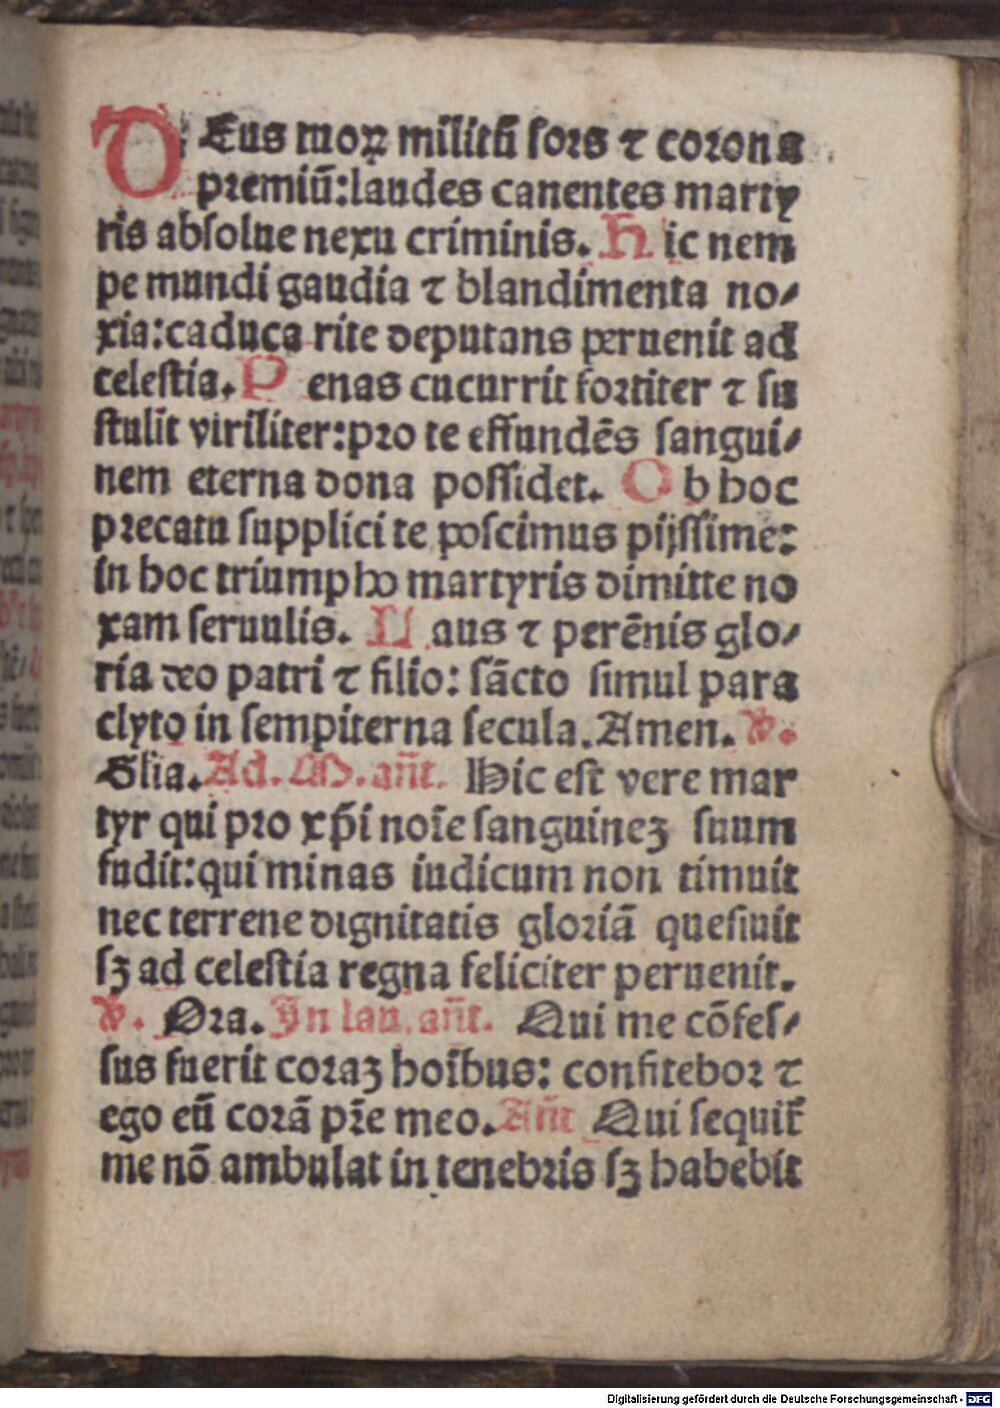 DEus tuoꝝ militū ſors ⁊ corona
premiū: laudes canentes marty
ris abſolue nexu criminis. Hic nem
pe mundi gaudia ⁊ blandimenta no⸗
xia: caduca rite deputans peruenit ad
celeſtia. Penas cucurrit fortiter ⁊ ſu
ſtulit viriliter: pro te effundēs ſangui⸗
nem eterna dona poſſidet. Ob hoc
precatu ſupplici te poſcimus pijſſime:
in hoc triumpho martyris dimitte no
xam ſeruulis. Laus ⁊ perēnis glo⸗
ria deo patri ⁊ filio: ſācto ſimul para
clyto in ſempiterna ſecula. Amen. ℣.
Glia. Ad. M. añt. Hic eſt vere mar
tyr qui pro xp̄i noīe ſanguineꝫ ſuum
fudit: qui minas iudicum non timuit
nec terrene dignitatis gloriā queſiuit
ſꝫ ad celeſtia regna feliciter peruenit.
℣. Ora. In lau. añt. Qui me cōfeſ⸗
ſus fuerit coraꝫ hoībus: confitebor ⁊
ego eū corā pr̄e meo. Añt Qui ſequit᷑
me nō ambulat in tenebris ſꝫ habebit
Digitalisierung gefördert durch die Deutsche Forschungsgemeinschaft - DFG